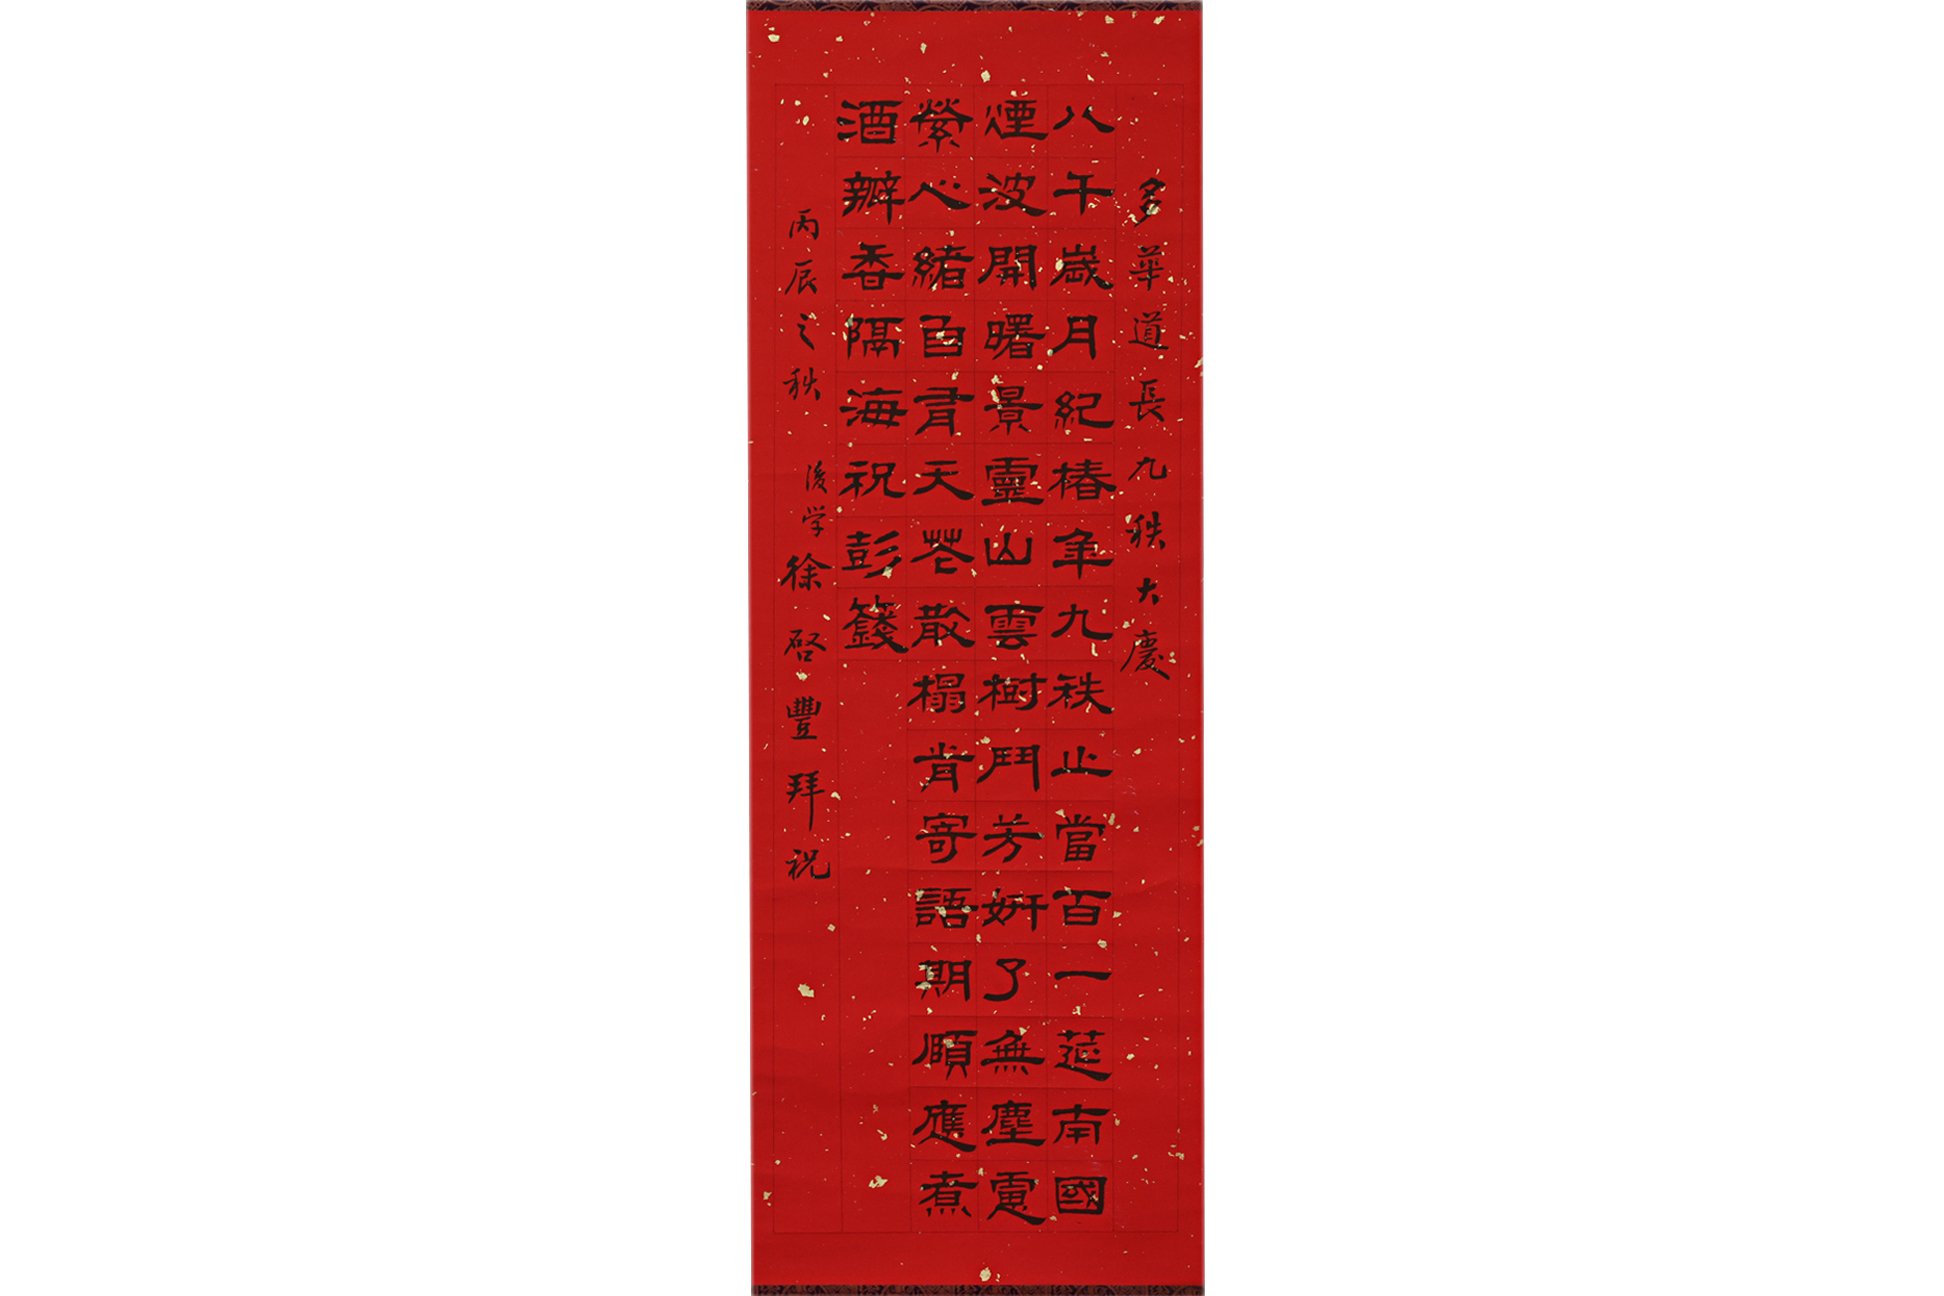 多華道長九秩大慶
八千歲月紀椿年九秩止當百一莚南國
煙波開曙景靈山雲樹鬥芳妍了無塵慮
縈心緒自有天花散榻肯寄語期頤應煮
酒瓣香隔海祝彭籛
丙辰之秋 後学徐啓豐拜祝